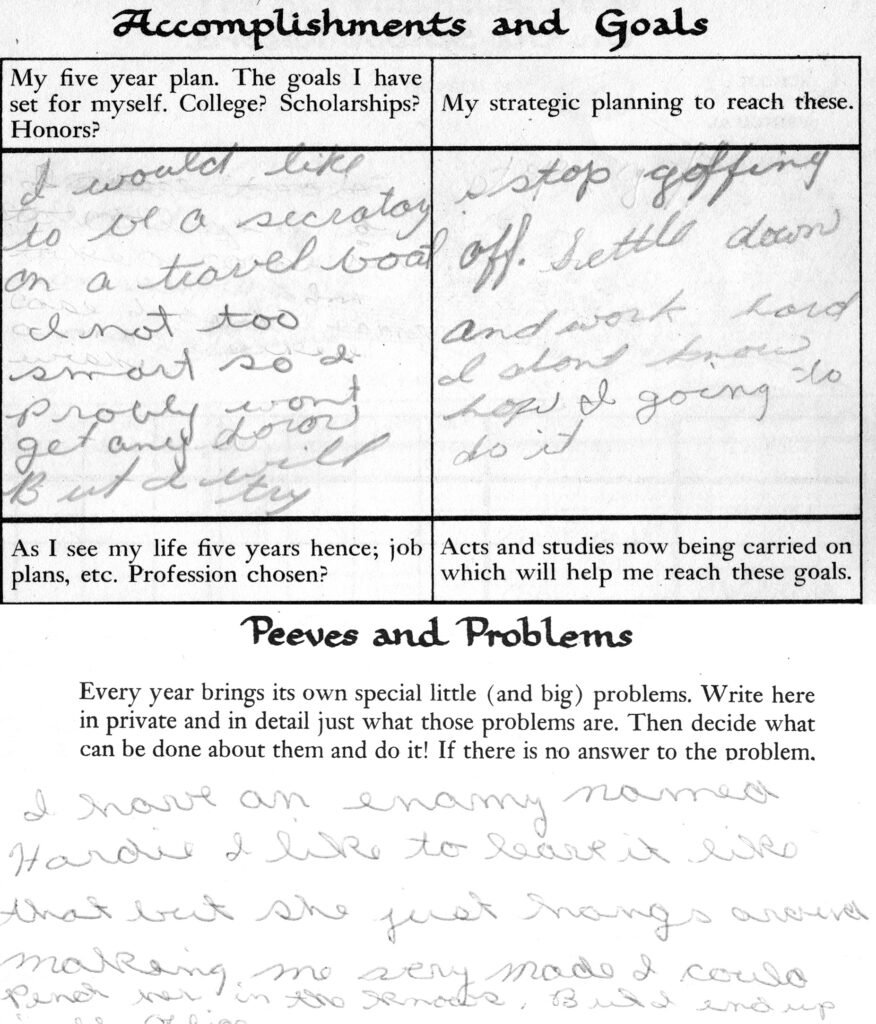 Accomplishments and Goals
My five year plan. The goals I have
set for myself. College? Scholarships?
Honors?
My strategic planning to reach these.
I would like
to be a secratay
on a travel boat
I not too
smart so I
probly wont
get any down
But I will
try
stop goffing
off. Settle down
and work hard
I dont know
how I going to
do it
As I see my life five years hence; job
plans, etc. Profession chosen?
Acts and studies now being carried on
which will help me reach these goals.
Peeves and Problems
Every year brings its own special little (and big) problems. Write here
in private and in detail just what those problems are. Then decide what
can be done about them and do it! If there is no answer to the problem,
I have an enamy named
Hardie I like to leave it like
that but she just hangs around
making me very made I could
her in the . But I end up